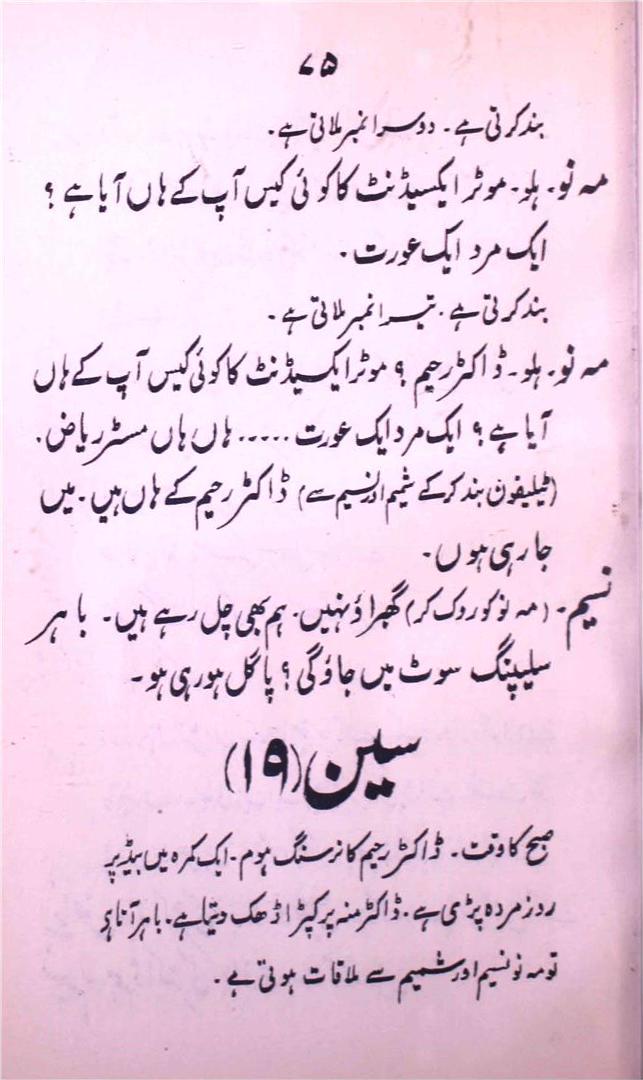 ۷۵
بند کرتی ہے۔ دوسرا نمبر ملاتی ہے۔
مہ نو۔ ہلو۔ موٹر ایکسیڈنٹ کا کوئی کیس آپ کے ہاں آیا ہے ؟
ایک مرد ایک عورت۔
بند کرتی ہے۔ تیسرا نمبر ملاتی ہے۔
مہ نو۔ ہلو۔ ڈاکٹر رحیم ؟ موٹر ایکسیڈنٹ کا کوئی کیس آپ کے ہاں
آیا ہے ؟ ایک مرد ایک عورت ..... ہاں ہاں مسٹر ریاض۔
(ٹیلیفون بند کر کے شمیم اور نسیم سے) ڈاکٹر رحیم کے ہاں ہیں۔ میں
جا رہی ہوں۔
نسیم۔ (مہ نو کو روک کر) گھبراؤ نہیں۔ ہم بھی چل رہے ہیں۔ باہر
سلیپنگ سوٹ میں جاؤ گی ؟ پاگل ہو رہی ہو۔
سین (۱۹)
صبح کا وقت۔ ڈاکٹر رحیم کا نرسنگ ہوم۔ ایک کمرہ میں بیڈ پر
روز مردہ پڑی ہے۔ ڈاکٹر منہ پر کپڑا ڈھک دیتا ہے۔ باہر آتا ہے
تو مہ نو نسیم اور شمیم سے ملاقات ہوتی ہے۔